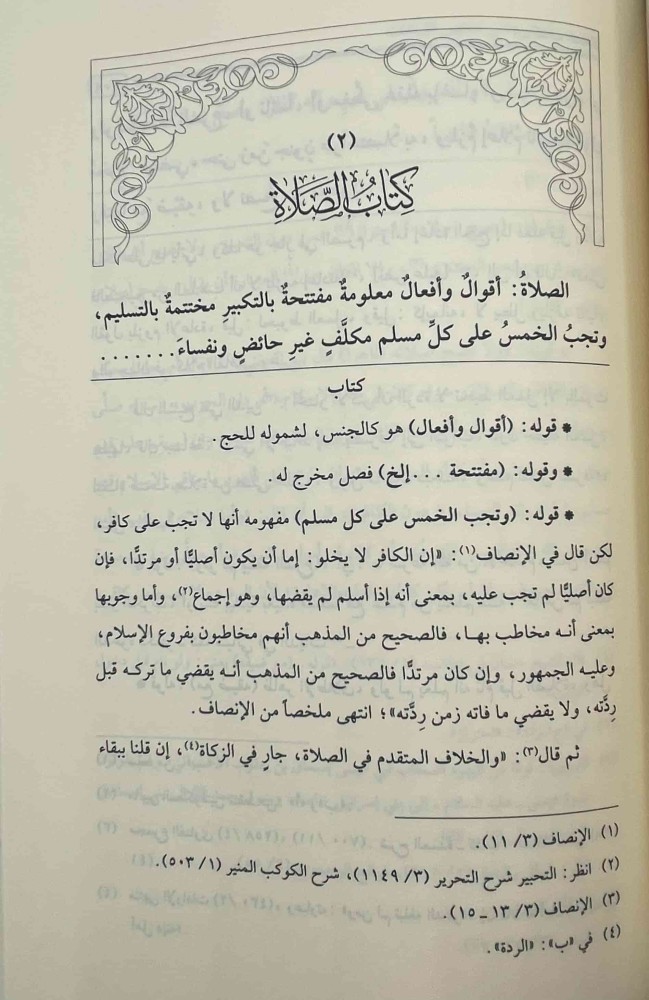 (٢)
كِتَابُ الصَّلَاةِ
الصلاةُ: أقوالٌ وأفعالٌ معلومةٌ مفتتحةٌ بالتكبيرِ مختتمةٌ بالتسليم،
وتجبُ الخمسُ على كلِّ مسلم مكلَّفٍ غيرِ حائضٍ ونفساءَ.......
كتاب
* قوله: (أقوال وأفعال) هو كالجنس، لشموله للحج.
* وقوله: (مفتتحة ...إلخ) فصل مخرج له.
* قوله: (وتجب الخمس على كل مسلم) مفهومه أنها لا تجب على كافر،
لكن قال في الإنصاف(١): «إن الكافر لا يخلو: إما أن يكون أصليًّا أو مرتدًّا، فإن
كان أصليًّا لم تجب عليه، بمعنى أنه إذا أسلم لم يقضها، وهو إجماع(٢)، وأما وجوبها
بمعنى أنه مخاطب بها، فالصحيح من المذهب أنهم مخاطبون بفروع الإسلام،
وعليه الجمهور، وإن كان مرتدًّا فالصحيح من المذهب أنه يقضي ما تركه قبل
رِدَّته، ولا يقضي ما فاته زمن رِدَّته»؛ انتهى ملخصاً من الإنصاف.
ثم قال(٣): «والخلاف المتقدم في الصلاة، جارٍ في الزكاة(٤)، إن قلنا ببقاء
(١) الإنصاف (٣/ ١١).
(٢) انظر: التحبير شرح التحرير (٣/ ١١٤٩)، شرح الكوكب المنير (١/ ٥٠٣).
(٣) الإنصاف (٣/ ١٣ ـ ١٥).
(٤) في «ب»: «الردة».